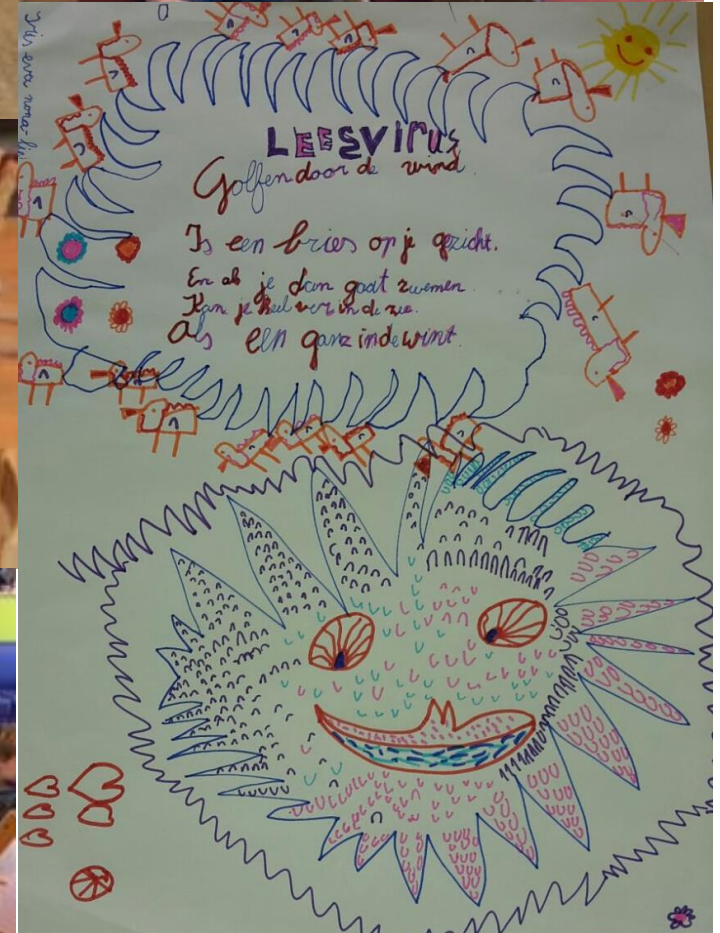 LEESVIrus
Golfen door de wind
Is een bries op je gezicht.
En als je dan gaat zwemen.
Kan je heel ver in de zee.
Als een ganz indewint.
eva